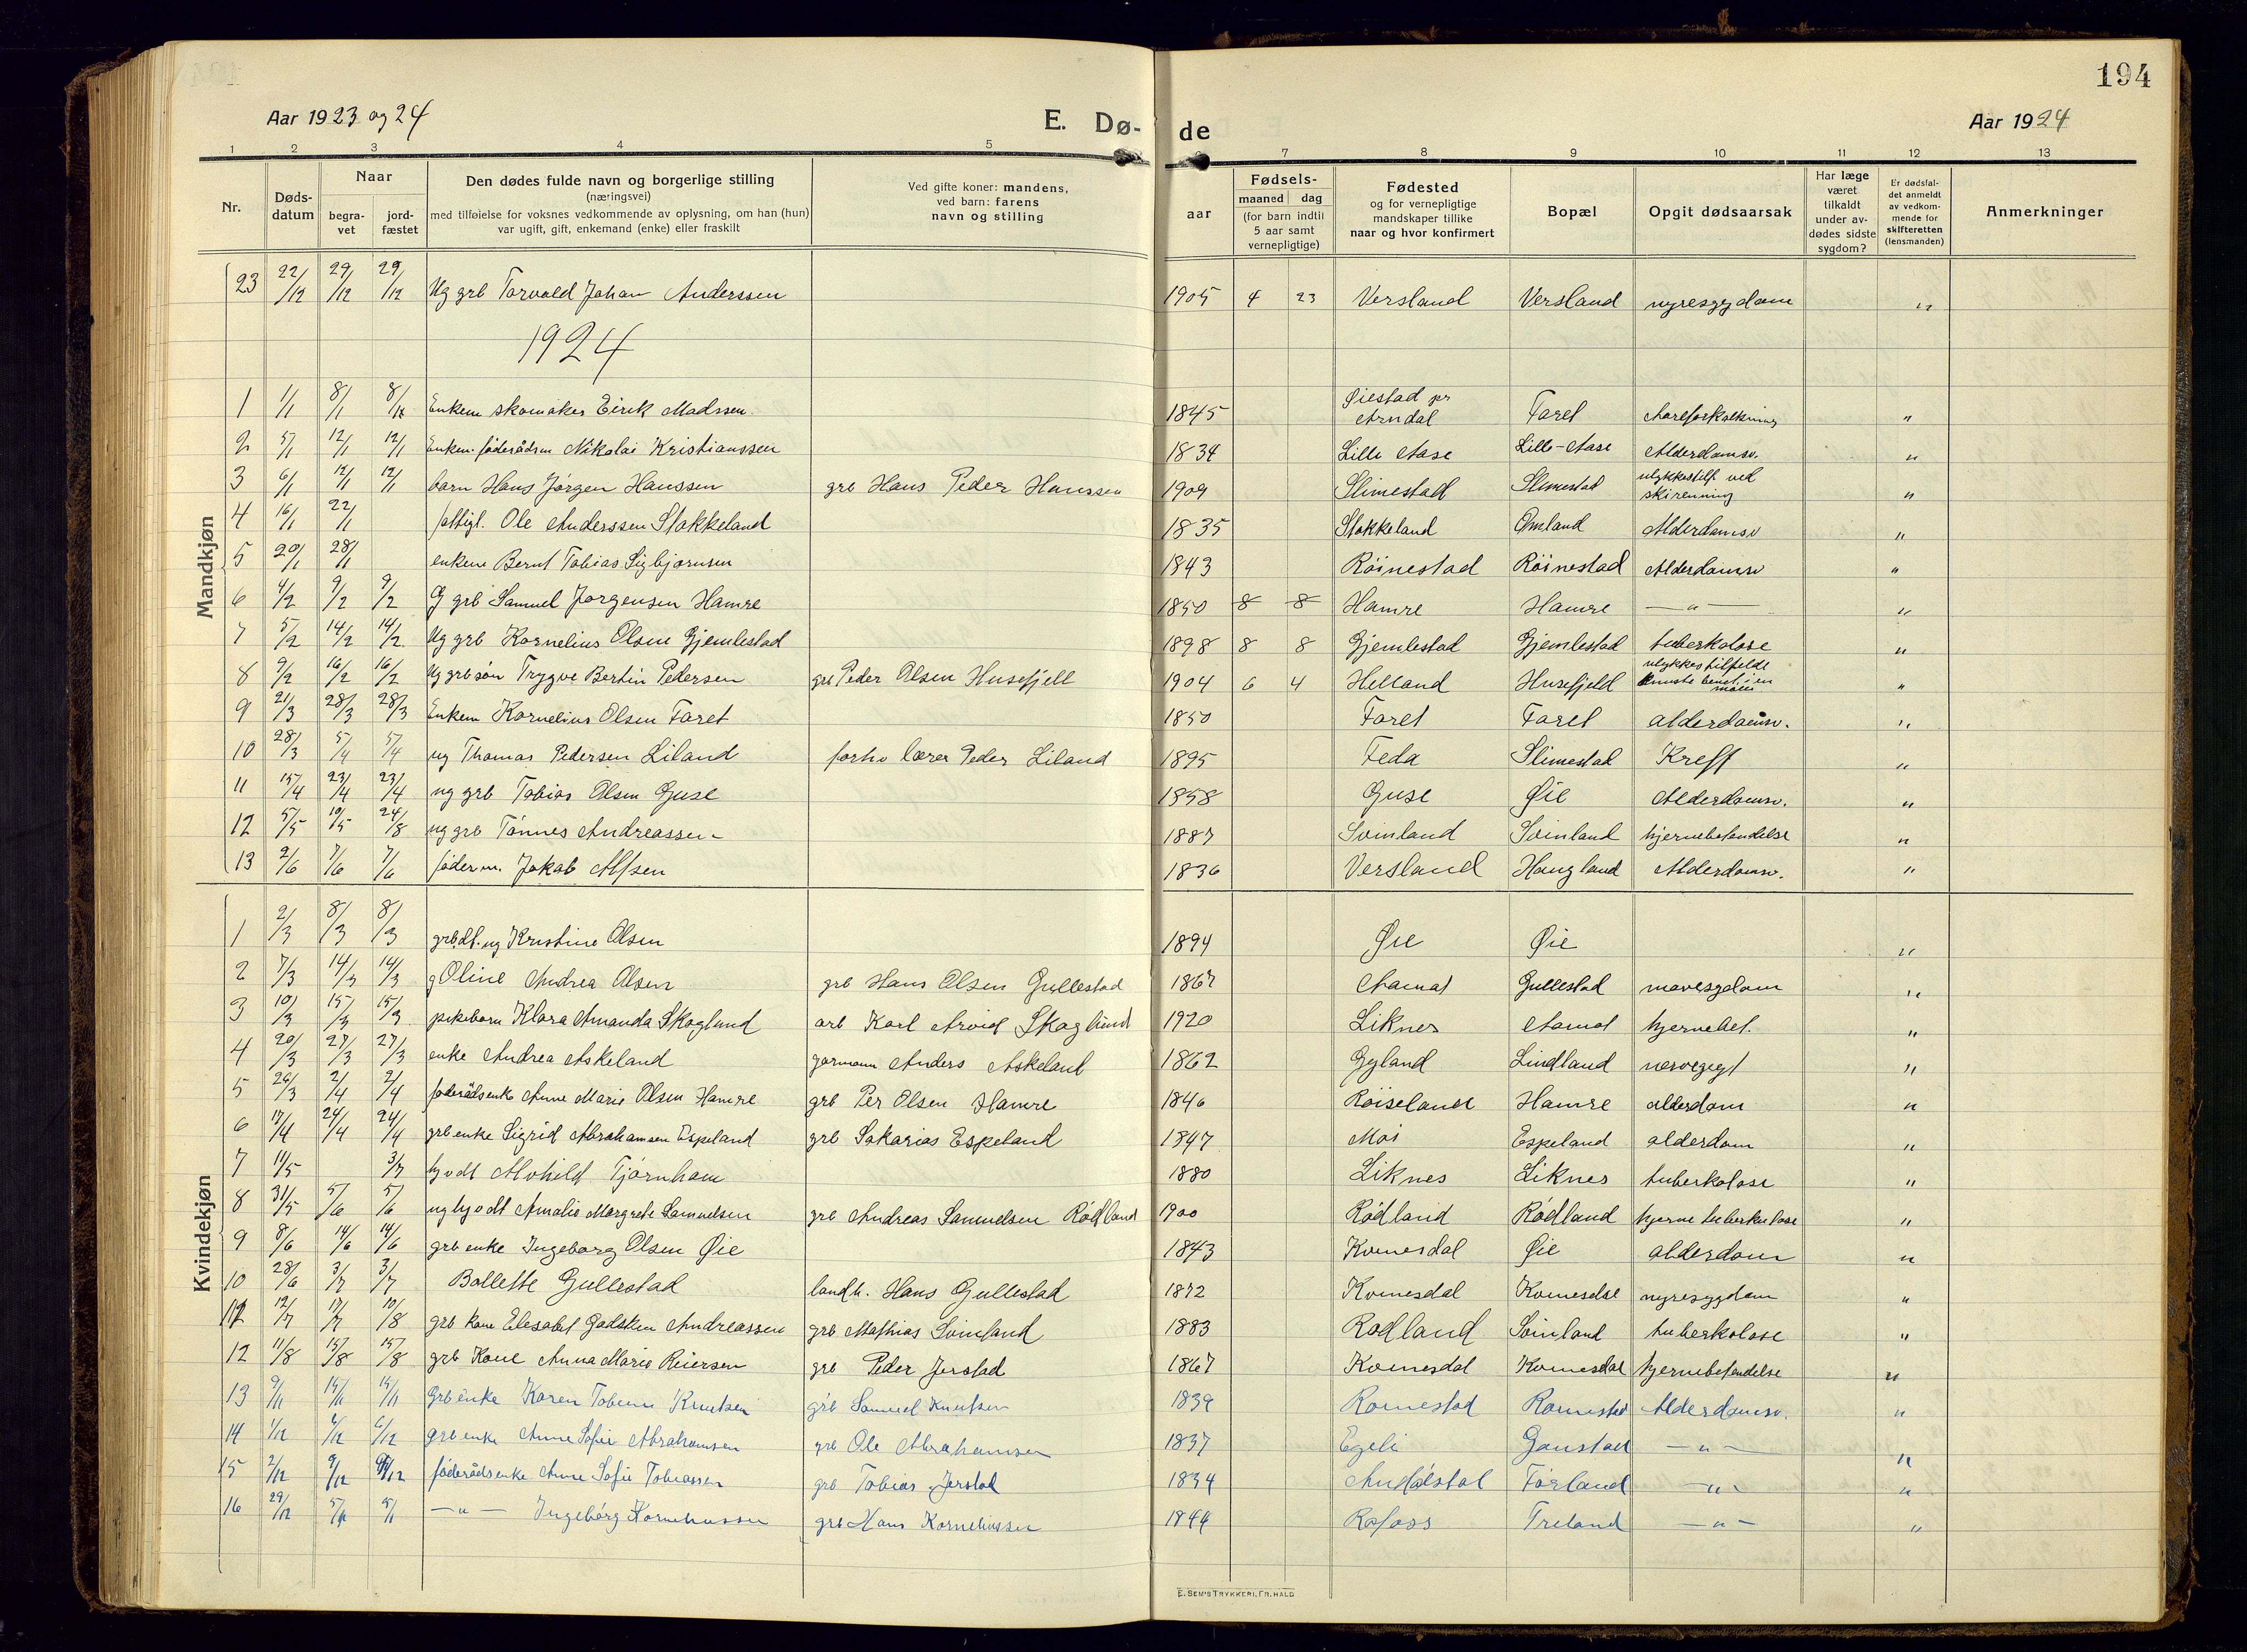 194
Aar 1923 og 24 E. Dø- de Aar 1924
1 2 3 4 5 7 8 9 10 11 12 13
Nr. Døds-datum Naar begra-vet jord-fæstet Den dødes fulde navn og borgerlige stilling (næringsvei) med tilføielse for voksnes vedkommende av oplysning, om han (hun) var ugift, gift, enkemand (enke) eller fraskilt Ved gifte koner: mandens, ved barn: farens navn og stilling aar Fødsels- maaned dag (for barn indtil 5 aar samt vernepligtige) Fødested og for vernepligtige mandskaper tillike naar og hvor konfirmert Bopæl Opgit dødsaarsak Har læge været tilkaldt under av-dødes sidste sygdom? Er dødsfal-det anmeldt av vedkom-mende for skifteretten (lensmanden) Anmerkninger
Mandkjøn
23 22/12 29/12 29/12 Ug grb Torvald Johan Anderssen 1905 4 23 Versland Versland nyresygdom "
1924
1 1/1 8/1 8/1 Enkem skomaker Eirik Madssen. 1845 Øiestad pr Arndal Faret Aareforkalkning "
2 5/1 12/1 12/1 Enkem. føderådsm Nikolai Kristianssen 1834 Lille Aase Lille-Aase Alderdomsv. "
3 6/1 12/1 12/1 barn Hans Jørgen Hanssen grb Hans Peder Hanssen 1909 Slimestad Slimestad ulykkestilf. ved skirenning "
4 16/1 22/1 fattigl. Ole Anderssen Stokkeland 1835 Stokkeland Omland Alderdomsv "
5 20/1 28/1 enkem Bernt Tobias Sigbjørnsen 1843 Röinestad Röinestad Alderdomsv "
6 4/2 9/2 9/2 G grb Samuel Jørgensen Hamre 1850 8 8 Hamre Hamre — " — "
7 5/2 14/2 14/2 Ug grb Kornelius Olsen Gjemlestad 1898 8 8 Gjemlestad Gjemlestad tuberkolose "
8 9/2 16/2 16/2 Ug grb søn Trygve Bertin Pedersen grb Peder Olsen Husefjell 1904 6 4 Helland Husefjeld ulykkes tilfelde knuste benet i en "
9 21/3 28/3 28/3 Enkem Kornelius Olsen Faret 1850 Faret Faret alderdomsv. "
10 28/3 5/4 5/4 ug Thomas Pedersen Liland forhv lærer Peder Liland 1895 Feda Slimestad Kreft "
11 15/4 23/4 23/4 ug grb Tobias Olsen Guse 1858 Guse Øie Alderdomsv. "
12 5/5 10/5 24/8 ug grb Tønnes Andreassen 1887 Svinland Svinland hjernebetendelse "
13 2/6 7/6 7/6 føderm. Jakob Alfsen 1836 Versland Haugland Alderdomsv. "
Kvindekjøn
1 2/3 8/3 8/3 grb.dt. ug Kristine Olsen 1894 Øie Øie "
2 7/3 14/3 14/3 g Oline Andrea Olsen grb Hans Olsen Gullestad 1867 Aamot Gullestad mavesygdom "
3 10/3 15/3 15/3 pikebarn Klara Amanda Skoglund arb Karl Arvid Skoglund 1920 Liknes Aamot hjernebet. "
4 20/3 27/3 27/3 enke Andrea Askeland Anders Askeland 1862 Gyland Lindland nervegigt "
5 26/3 2/4 2/4 føderådsenke Anne Marie Olsen Hamre grb Per Olsen Hamre 1846 Röiseland Hamre alderdom "
6 17/4 24/4 24/4 grb enke Sigrid Abrahamsen Espeland grb Sakarias Espeland 1847 Moi Espeland alderdom "
7 11/5 3/7 Alvhild Tjørnhom 1880 Liknes Liknes tuberkolose "
8 31/5 5/6 5/6 Amalie Margrete Samuelsen grb Andreas Samuelsen Rødland 1900 Rødland Rødland hjerne tuberkulose "
9 8/6 14/6 14/6 grb enke Ingeborg Olsen Øie 1843 Kvinesdal Øie alderdom "
10 28/6 3/7 3/7 Bollette Gullestad landh. Hans Gullestad 1872 Kvinesdal nyresygdom "
11 12/7 17/7 10/8 grb kone Elesabet Gadsken Andreassen grb Mathias Svinland 1883 Rødland Svinland tuberkolose "
12 11/8 15/8 15/8 grb Kone Anna Marie Reiersen grb Peder Jerstad 1867 Kvinesdal Kvinesdal hjernebetendelse "
13 9/11 15/11 15/11 Grb enke Karen Knutsen grb Samuel Knutsen 1839 Alderdomsv. "
14 1/12 6/12 6/12 grb enke Anne Sofie Abrahamsen grb Ole Abrahamsen 1837 Egeli — " — "
15 2/12 9/12 føderådsenke Anne Sofie Tobiassen grb Tobias Jerstad 1834 — " — "
16 29/12 — " — Ingeborg Korneliussen grb Hans Korneliussen 1844 Rafoss Treland — " — "
E. SEM'S TRYKKERI, FR.HALD